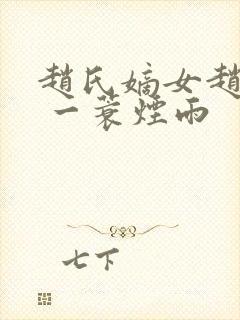 趙氏嫡女趙
一蓑煙雨
七下